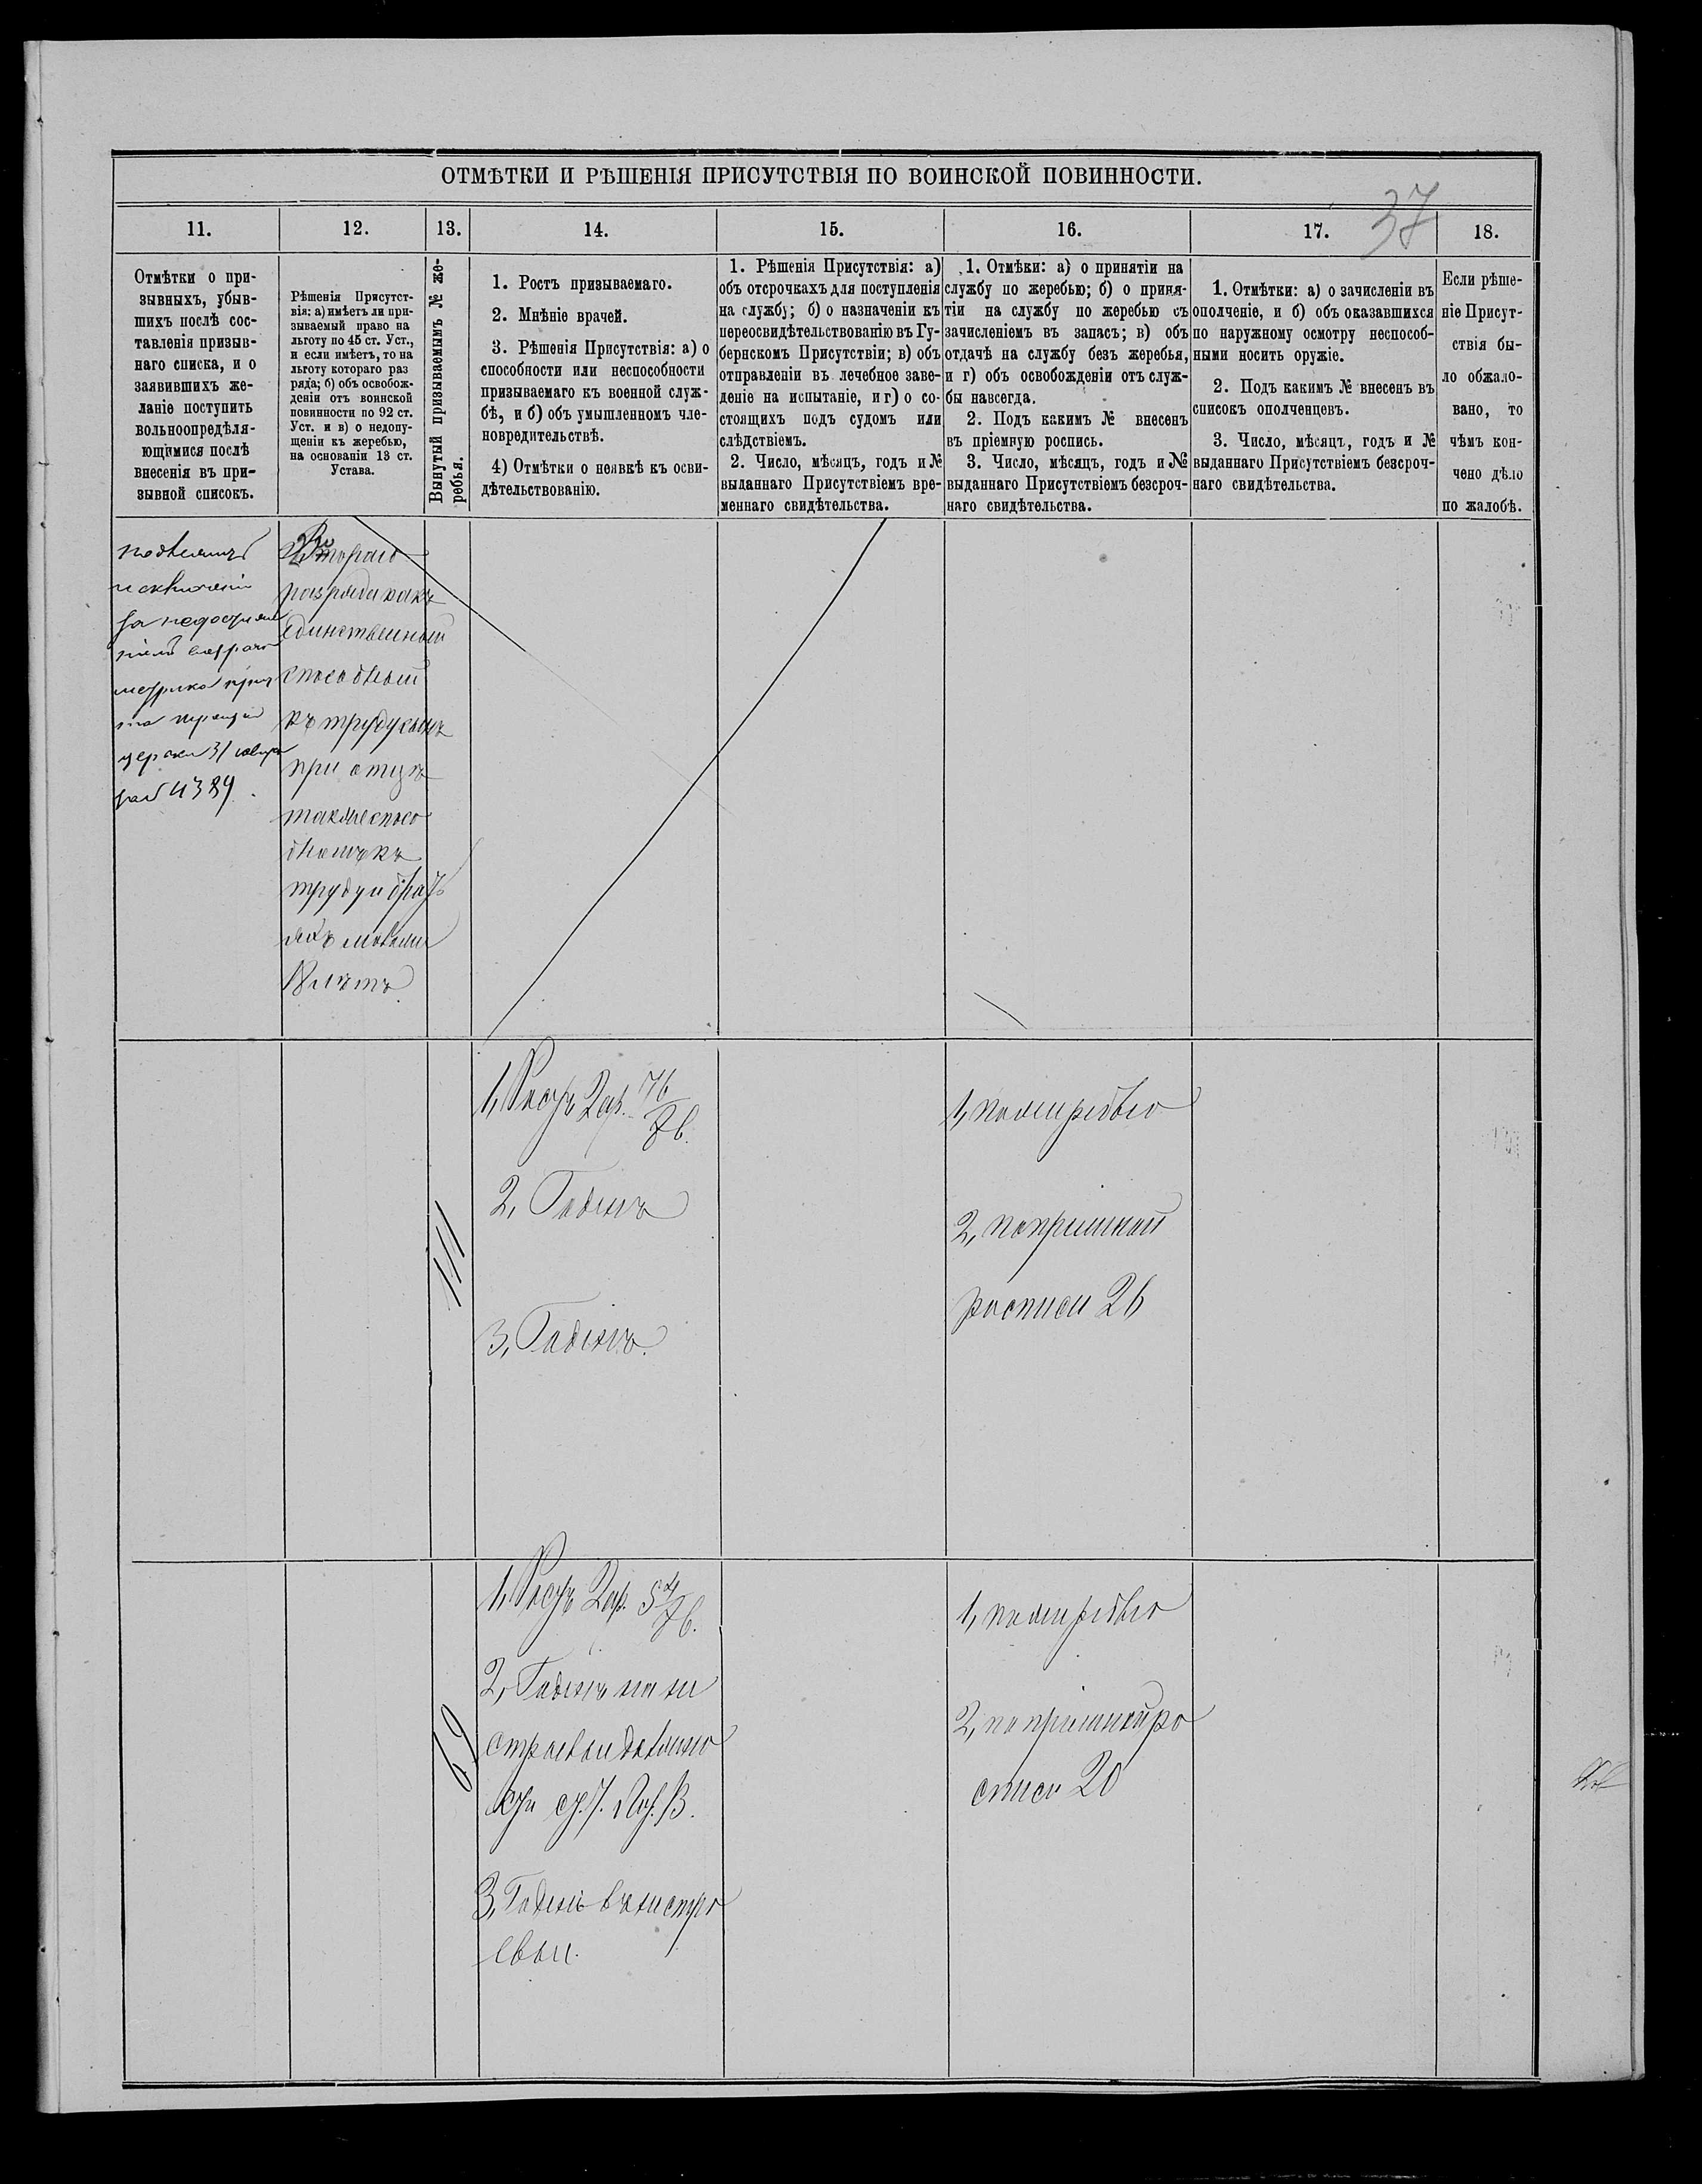 ОТМѢТКИ И РѢШЕНІЯ ПРИСУТСТВІЯ ПО ВОИНСКОЙ ПОВИННОСТИ.
37
11.
12.
13.
14.
15.
16.
17.
18.
Отмѣтки о при-
зывныхъ, убыв-
шихъ послѣ сос-
тавленія призыв-
наго списка, и о
заявившихъ же-
ланіе поступить
вольноопредѣля-
ющимися послѣ
внесенія въ при-
зывной списокъ.
Рѣшенія Присутст-
вія: а) имѣетъ ли при-
зываемый право на
льготу по 45 ст. Уст.,
и если имѣетъ, то на
льготу котораго раз
ряда; б) объ освобож-
деніи отъ воинской
повинности по 92 ст.
Уст. и в) о недопу-
щеніи къ жеребью,
на основаніи 13 ст.
Устава.
Вынутый призываемымъ № же-
ребья.
1. Ростъ призываемаго.
2. Мнѣніе врачей.
3. Рѣшенія Присутствія: а) о
способности или неспособности
призываемаго къ военной служ-
бѣ, и б) объ умышленномъ чле-
новредительствѣ.
4) Отмѣтки о неявкѣ къ осви-
дѣтельствованію.
1. Рѣшенія Присутствія: а)
объ отсрочкахъ для поступленія
на службу; б) о назначеніи къ
переосвидѣтельствованію въ Гу-
бернскомъ Присутствіи; в) объ
отправленіи въ лечебное заве-
деніе на испытаніе, и г) о со-
стоящихъ подъ судомъ или
слѣдствіемъ.
2. Число, мѣсяцъ, годъ и №
выданнаго Присутствіемъ вре-
меннаго свидѣтельства.
1. Отмѣки: а) о принятіи на
службу по жеребью; б) о приня-
тіи на службу по жеребью съ
зачисленіемъ въ запасъ; в) объ
отдачѣ на службу безъ жеребья,
и г) объ освобожденіи отъ служ-
бы навсегда.
2. Подъ какимъ № внесенъ
въ пріемную роспись.
3. Число, мѣсяцъ, годъ и №
выданнаго Присутствіемъ безсроч-
наго свидѣтельства.
1. Отмѣтки: а) о зачисленіи въ
ополченіе, и б) объ оказавшихся
по наружному осмотру неспособ-
ными носить оружіе.
2. Подъ какимъ № внесенъ въ
списокъ ополченцевъ.
3. Число, мѣсяцъ, годъ и №
выданнаго Присутствіемъ безсроч-
наго свидѣтельства.
Если рѣше-
ніе Присут-
ствія бы-
ло обжало-
вано, то
чѣмъ кон-
чено дѣло
по жалобѣ.
подлежитъ
исключенію
за
метрика
церкви 31
за № 4389.
Втораго
разряда какъ
единственный
способный
къ труду сынъ
при отцѣ
также спосо
бномъ къ
труду и брать
яхъ моложе
18 лѣтъ.
111
1, Ростъ 2 ар. 7 6/8 в.
2, Годенъ
3, Годенъ.
1, по жеребью
2, по пріемной
росписи 26
62
1, Ростъ 2 ар. 5 4/8 в.
2, Годенъ на не
строевыя должно
сти
3, Годенъ въ нестро
евыя.
1, по жеребью
2, по пріемной ро
списи 20